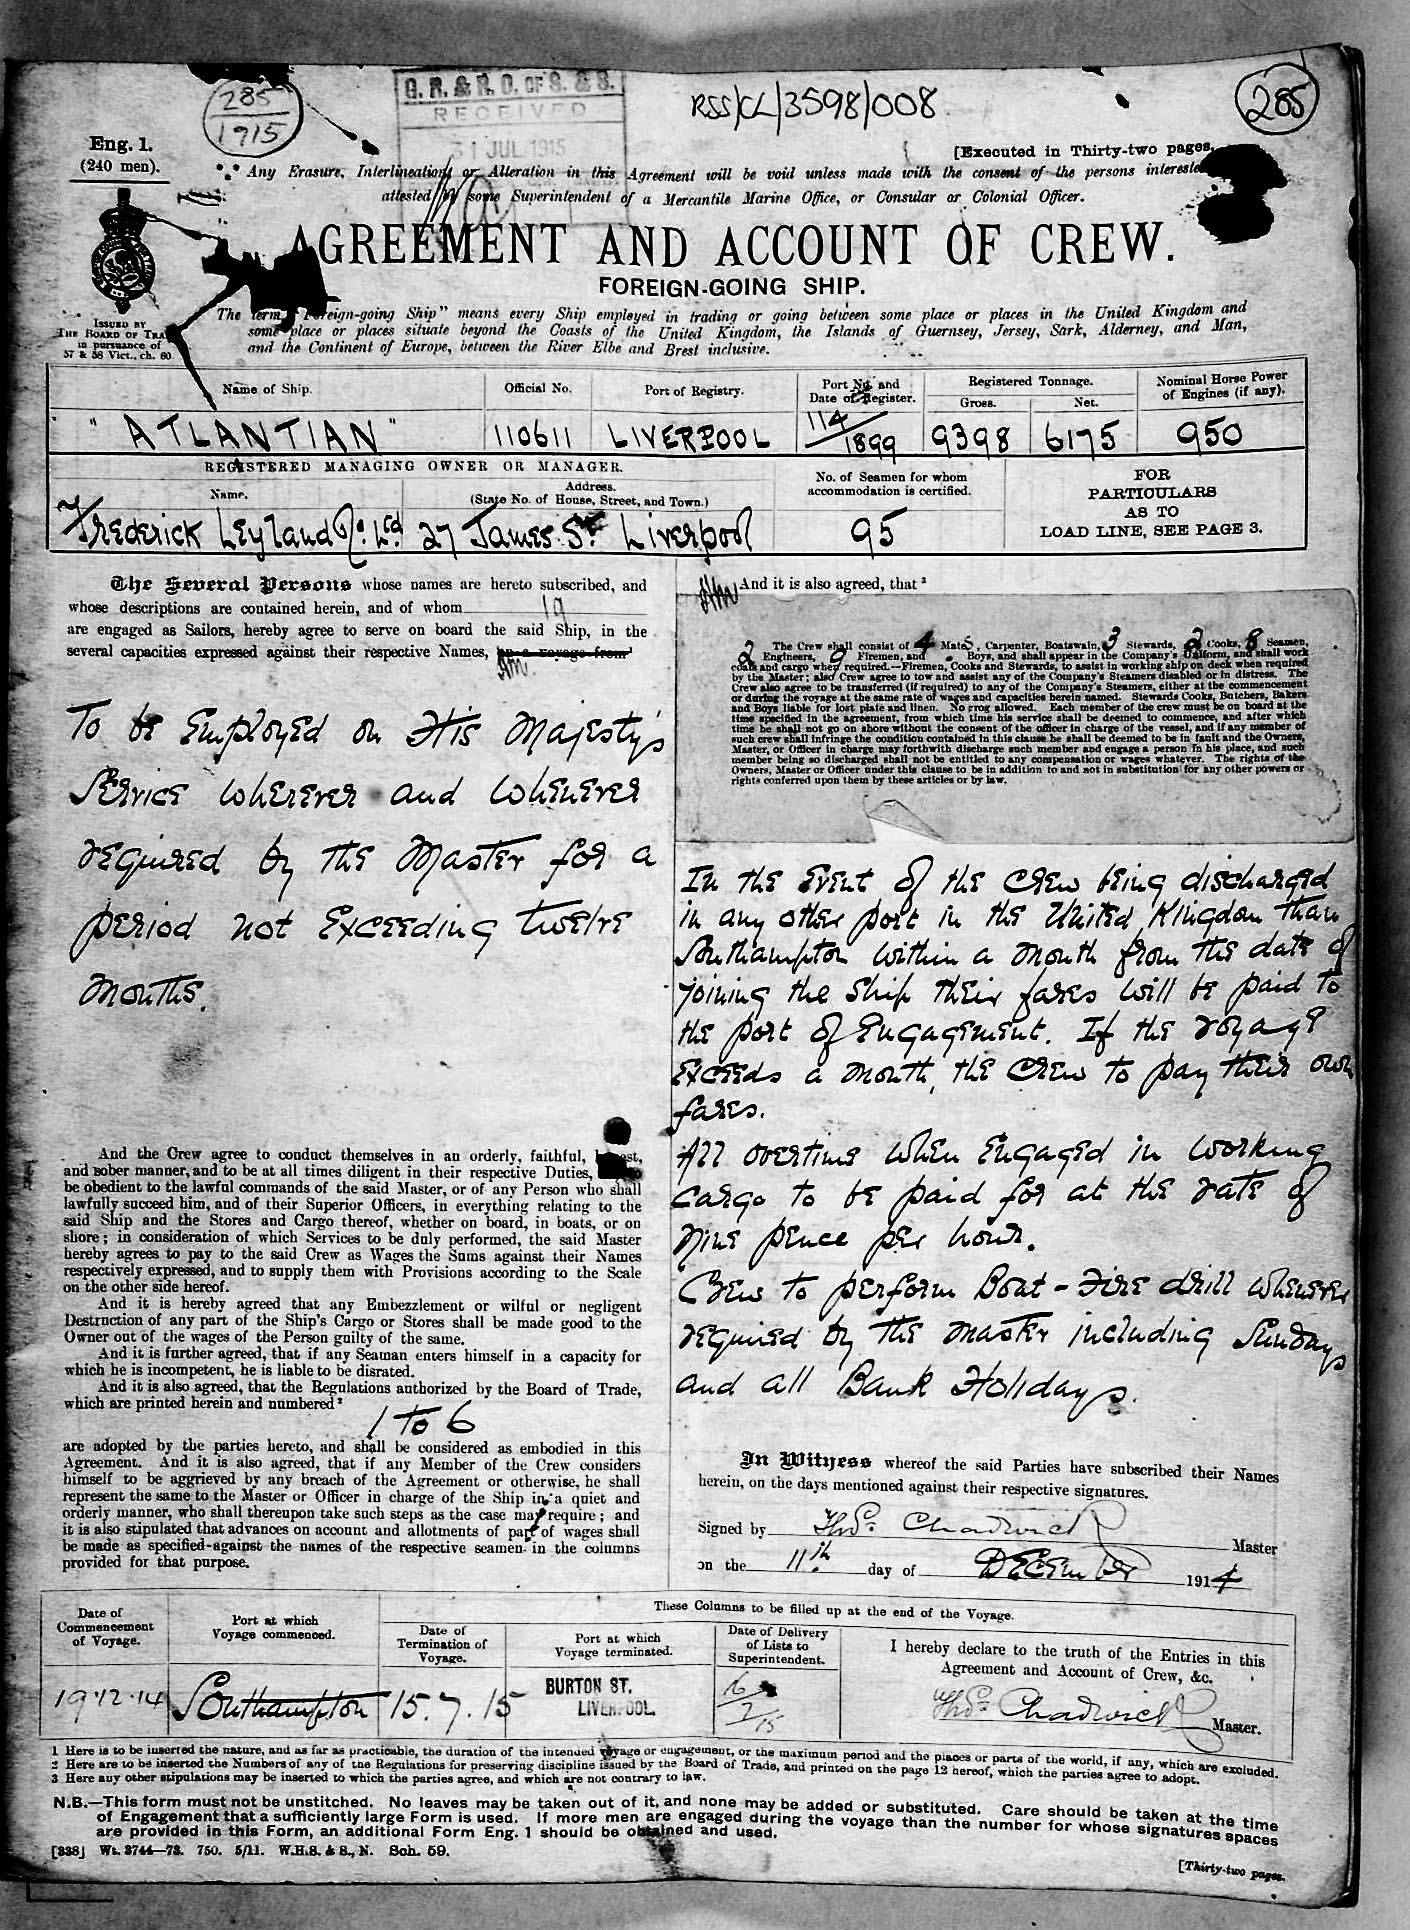 285
1915
G. R. & R. O. OF S. & S.
RECEIVED
31 JUL 1915
RSS/CL/3598/008
285
Eng. 1.
(240 men).
[Executed in Thirty-two pages.
Any Erasure, Interlineation, or Alteration in this Agreement will be void unless made with the consent of the persons interested
attested by some Superintendent of a Mercantile Marine Office, or Consular or Colonial Officer.
AGREEMENT AND ACCOUNT OF CREW.
FOREIGN-GOING SHIP.
ISSUED BY
THE BOARD OF TRA
in pursuance of
57 & 58 Vict., ch. 60
The term "Foreign-going Ship" means every Ship employed in trading or going between some place or places in the United Kingdom and
some place or places situate beyond the Coasts of the United Kingdom, the Islands of Guernsey, Jersey, Sark, Alderney, and Man,
and the Continent of Europe, between the River Elbe and Brest inclusive.
Name of Ship.
Official No.
Port of Registry.
Port No. and
Date of Register.
Registered Tonnage.
Gross.
Net.
Nominal Horse Power
of Engines (if any).
"ATLANTIAN"
110611
LIVERPOOL
114/1899
9398
6175
950
REGISTERED MANAGING OWNER OR MANAGER.
Name.
Address.
(State No. of House, Street, and Town.)
No. of Seamen for whom
accommodation is certified.
FOR
PARTICULARS
AS TO
LOAD LINE, SEE PAGE 3.
Frederick Leyland & Co. Ltd
27 James St Liverpool
95
The Several Persons whose names are hereto subscribed, and
whose descriptions are contained herein, and of whom 19
are engaged as Sailors, hereby agree to serve on board the said Ship, in the
several capacities expressed against their respective Names, on a voyage from¹
To be Employed on His Majesty's
Service wherever and whenever
required by the Master for a
period not exceeding twelve
months.
And the Crew agree to conduct themselves in an orderly, faithful, honest,
and sober manner, and to be at all times diligent in their respective Duties,
be obedient to the lawful commands of the said Master, or of any Person who shall
lawfully succeed him, and of their Superior Officers, in everything relating to the
said Ship and the Stores and Cargo thereof, whether on board, in boats, or on
shore; in consideration of which Services to be duly performed, the said Master
hereby agrees to pay to the said Crew as Wages the Sums against their Names
respectively expressed, and to supply them with Provisions according to the Scale
on the other side hereof.
And it is hereby agreed that any Embezzlement or wilful or negligent
Destruction of any part of the Ship's Cargo or Stores shall be made good to the
Owner out of the wages of the Person guilty of the same.
And it is further agreed, that if any Seaman enters himself in a capacity for
which he is incompetent, he is liable to be disrated.
And it is also agreed, that the Regulations authorized by the Board of Trade,
which are printed herein and numbered²
1 to 6
are adopted by the parties hereto, and shall be considered as embodied in this
Agreement. And it is also agreed, that if any Member of the Crew considers
himself to be aggrieved by any breach of the Agreement or otherwise, he shall
represent the same to the Master or Officer in charge of the Ship in a quiet and
orderly manner, who shall thereupon take such steps as the case may require; and
it is also stipulated that advances on account and allotments of part of wages shall
be made as specified against the names of the respective seamen in the columns
provided for that purpose.
And it is also agreed, that³
The Crew shall consist of 4 Mates, Carpenter, Boatswain, 3 Stewards, 2 Cooks, 8 Seamen,
2 Engineers, 9 Firemen, and Boys, and shall appear in the Company's Uniform, and shall work
coals and cargo when required.—Firemen, Cooks and Stewards, to assist in working ship on deck when required
by the Master; also Crew agree to tow and assist any of the Company's Steamers disabled or in distress. The
Crew also agree to be transferred (if required) to any of the Company's Steamers, either at the commencement
or during the voyage at the same rate of wages and capacities herein named. Stewards Cooks, Butchers, Bakers
and Boys liable for lost plate and linen. No grog allowed. Each member of the crew must be on board at the
time specified in the agreement, from which time his service shall be deemed to commence, and after which
time he shall not go on shore without the consent of the officer in charge of the vessel, and if any member of
such crew shall infringe the condition contained in this clause he shall be deemed to be in fault and the Owners,
Master, or Officer in charge may forthwith discharge such member and engage a person in his place, and such
member being so discharged shall not be entitled to any compensation or wages whatever. The rights of the
Owners, Master or Officer under this clause to be in addition to and not in substitution for any other powers or
rights conferred upon them by these articles or by law.
In the event of the crew being discharged
in any other port in the United Kingdom than
Southampton within a month from the date of
joining the ship their fares will be paid to
the port of engagement. If the voyage
exceeds a month, the crew to pay their own
fares.
All overtime when engaged in working
cargo to be paid for at the rate of
nine pence per hour.
Crew to perform Boat - Fire drill whenever
required by the Master including Sundays
and all Bank Holidays.
In Witness whereof the said Parties have subscribed their Names
herein, on the days mentioned against their respective signatures.
Signed by Thos. Chadwick Master
on the 11th day of December 1914
Date of
Commencement
of Voyage.
Port at which
Voyage commenced.
These Columns to be filled up at the end of the Voyage.
Date of
Termination of
Voyage.
Port at which
Voyage terminated.
Date of Delivery
of Lists to
Superintendent.
I hereby declare to the truth of the Entries in this
Agreement and Account of Crew, &c.
19.12.14
Southampton
15.7.15
BURTON ST.
LIVERPOOL.
16/7/15
Thos. Chadwick Master.
1 Here is to be inserted the nature, and as far as practicable, the duration of the intended voyage or engagement, or the maximum period and the places or parts of the world, if any, which are excluded.
2 Here are to be inserted the Numbers of any of the Regulations for preserving discipline issued by the Board of Trade, and printed on the page 12 hereof, which the parties agree to adopt.
3 Here any other stipulations may be inserted to which the parties agree, and which are not contrary to law.
N.B.—This form must not be unstitched. No leaves may be taken out of it, and none may be added or substituted. Care should be taken at the time
of Engagement that a sufficiently large Form is used. If more men are engaged during the voyage than the number for whose signatures spaces
are provided in this Form, an additional Form Eng. 1 should be obtained and used.
[338] Wt. 3744—73. 750. 5/11. W.H.S. & S., N. Sch. 59.
[Thirty-two pages.